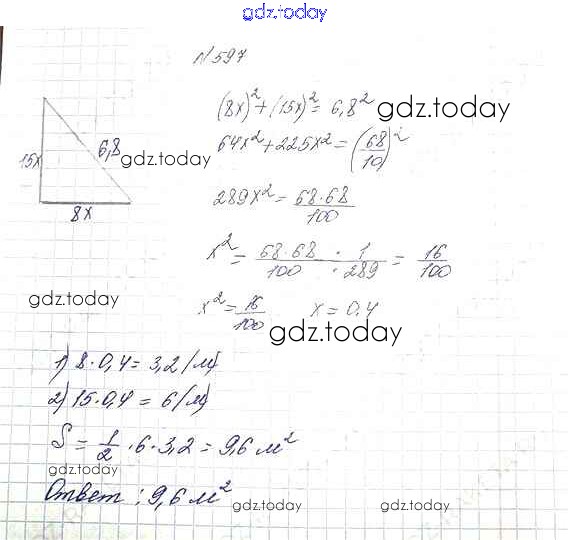 gdz.today
№597
(8x)² + (15x)² = 6,8²
gdz.today
64x² + 225x² = (68/10)²
15x
6,8
gdz.today
8x
289x² = 68·68/100
x² = 68·68/100 · 1/289 = 16/100
gdz.today
x² = 16/100 x = 0,4
gdz.today
1) 8·0,4 = 3,2 (м)
2) 15·0,4 = 6 (м)
S = 1/2 · 6 · 3,2 = 9,6 м²
gdz.today
Ответ: 9,6 м²
gdz.today gdz.today